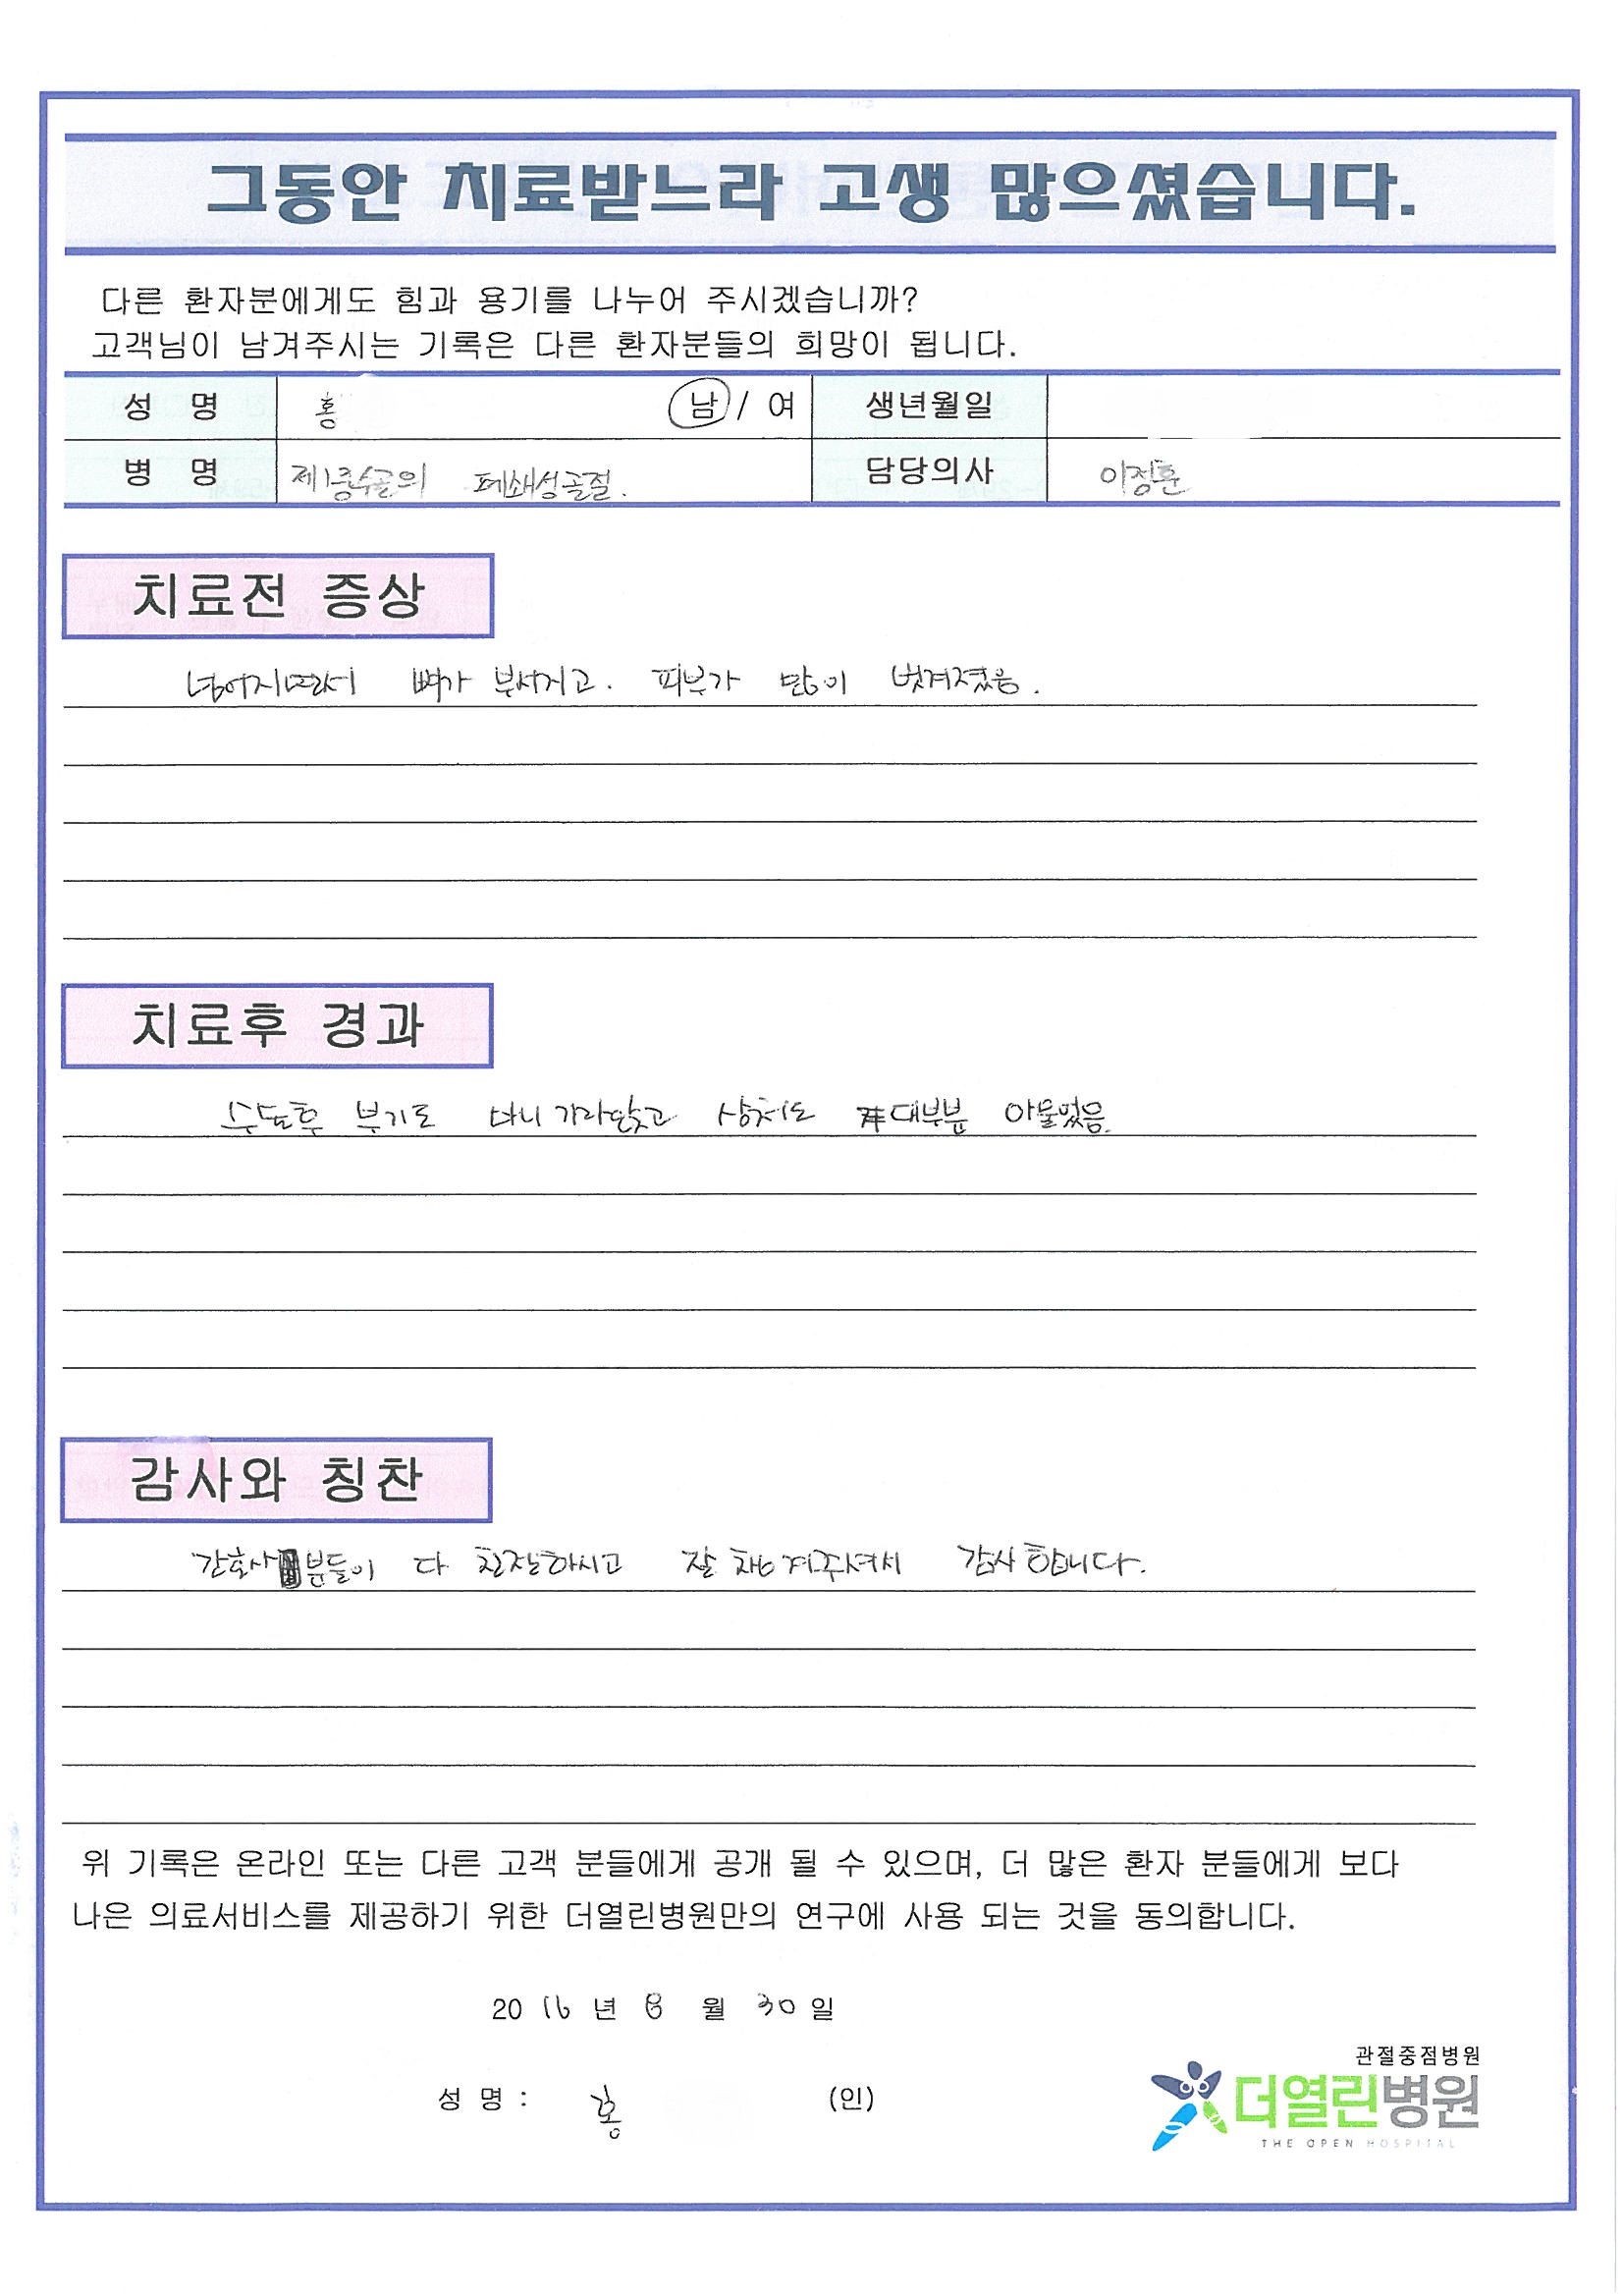 그동안 치료받느라 고생 많으셨습니다.
다른 환자분에게도 힘과 용기를 나누어 주시겠습니까?
고객님이 남겨주시는 기록은 다른 환자분들의 희망이 됩니다.
성 명 홍 남 / 여 생년월일
병 명 제1중수골의 폐쇄성골절. 담당의사 이정훈
치료전 증상
넘어지면서 뼈가 부서지고. 피부가 많이 벗겨졌음.
치료후 경과
수술후 부기도 많이 가라앉고 상처도 대부분 아물었음.
감사와 칭찬
간호사분들이 다 친절하시고 잘 챙겨주셔서 감사합니다.
위 기록은 온라인 또는 다른 고객 분들에게 공개 될 수 있으며, 더 많은 환자 분들에게 보다
나은 의료서비스를 제공하기 위한 더열린병원만의 연구에 사용 되는 것을 동의합니다.
2016 년 8 월 30 일
성 명 : 홍 (인)
관절중점병원
더열린병원
THE OPEN HOSPITAL